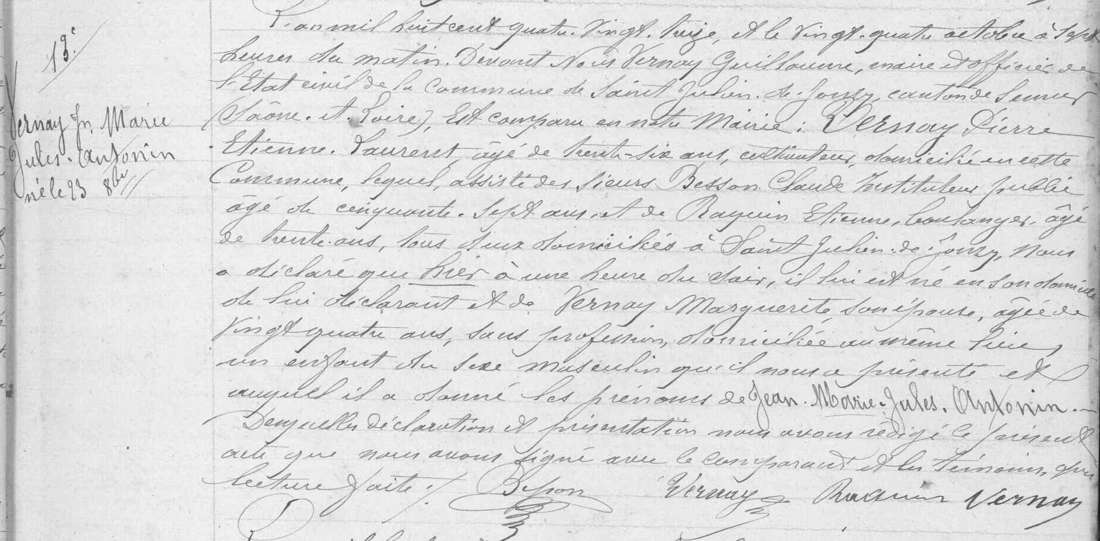 13e
Vernay Jn Marie
Jules-Antonin
né le 23 8bre
L'an mil huit cent quatre-vingt-treize, et le vingt-quatre octobre à sept
heures du matin. Devant Nous Vernay Guillaume, maire et officier de
l'Etat civil de la commune de Saint Julien-de-Jonzy, canton de Semur
(Saône-et-Loire), Est comparu en notre Mairie. Vernay Pierre
Etienne-Laurent, âgé de trente-six ans, cultivateur, domicilié en cette
Commune, lequel, assisté des sieurs Besson Claude Instituteur public
âgé de cinquante-sept ans, et de Raquin Etienne, boulanger âgé
de trente ans, tous deux domiciliés à Saint Julien-de-Jonzy, nous
a déclaré que hier à une heure du soir, il lui est né en son domicile
de lui déclarant et de Vernay Marguerite son épouse, âgée de
vingt quatre ans, sans profession, domiciliée au même lieu,
un enfant du sexe masculin qu'il nous a présenté et
auquel il a donné les prénoms de Jean-Marie-Jules-Antonin.-
Desquelles déclaration et présentation nous avons rédigé le présent
acte que nous avons signé avec le comparant et les témoins, après
lecture faite./.
Besson Vernay Raquin Vernay